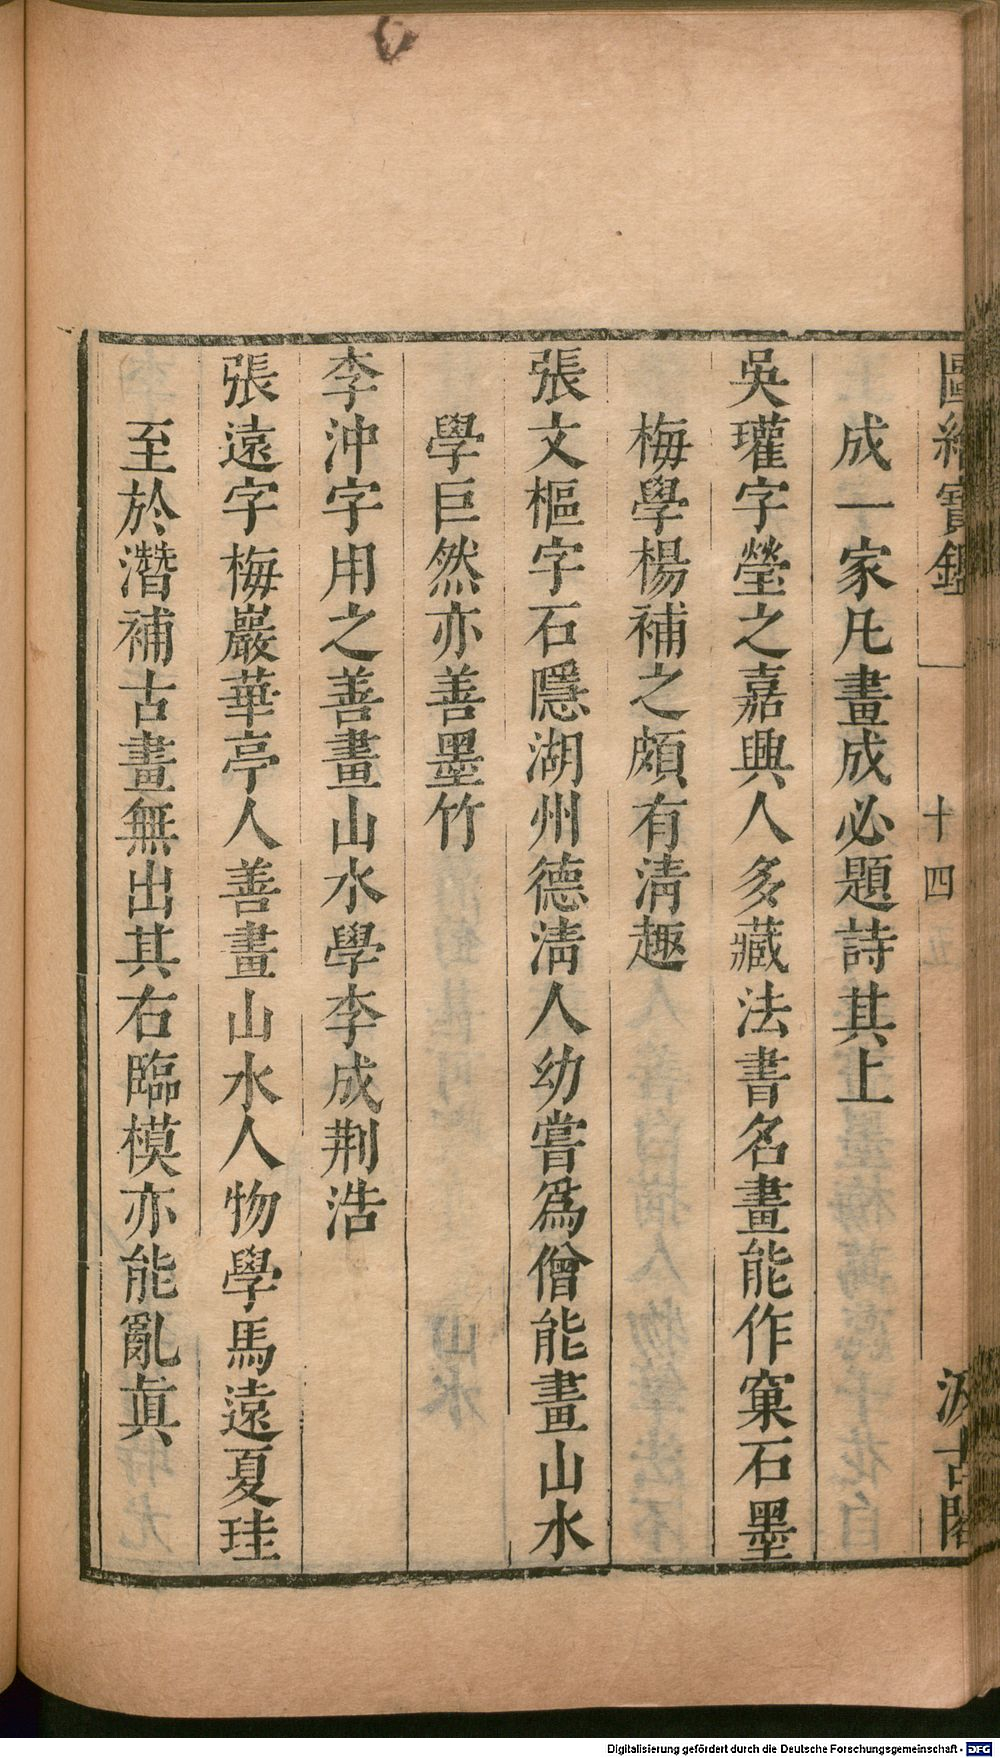 圖繪寶鑑 十四 汲古閣
成一家凡畫成必題詩其上
吳瓘字瑩之嘉興人多藏法書名畫能作窠石墨
梅學楊補之頗有淸趣
張文樞字石隱湖州德淸人幼嘗爲僧能畫山水
學巨然亦善墨竹
李沖字用之善畫山水學李成荆浩
張遠字梅巖華亭人善畫山水人物學馬遠夏珪
至於潛補古畫無出其右臨模亦能亂眞
Digitalisierung gefördert durch die Deutsche Forschungsgemeinschaft - DFG